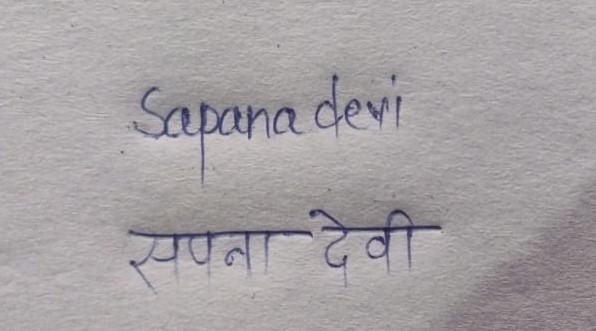 Sapana devi
सपना देवी